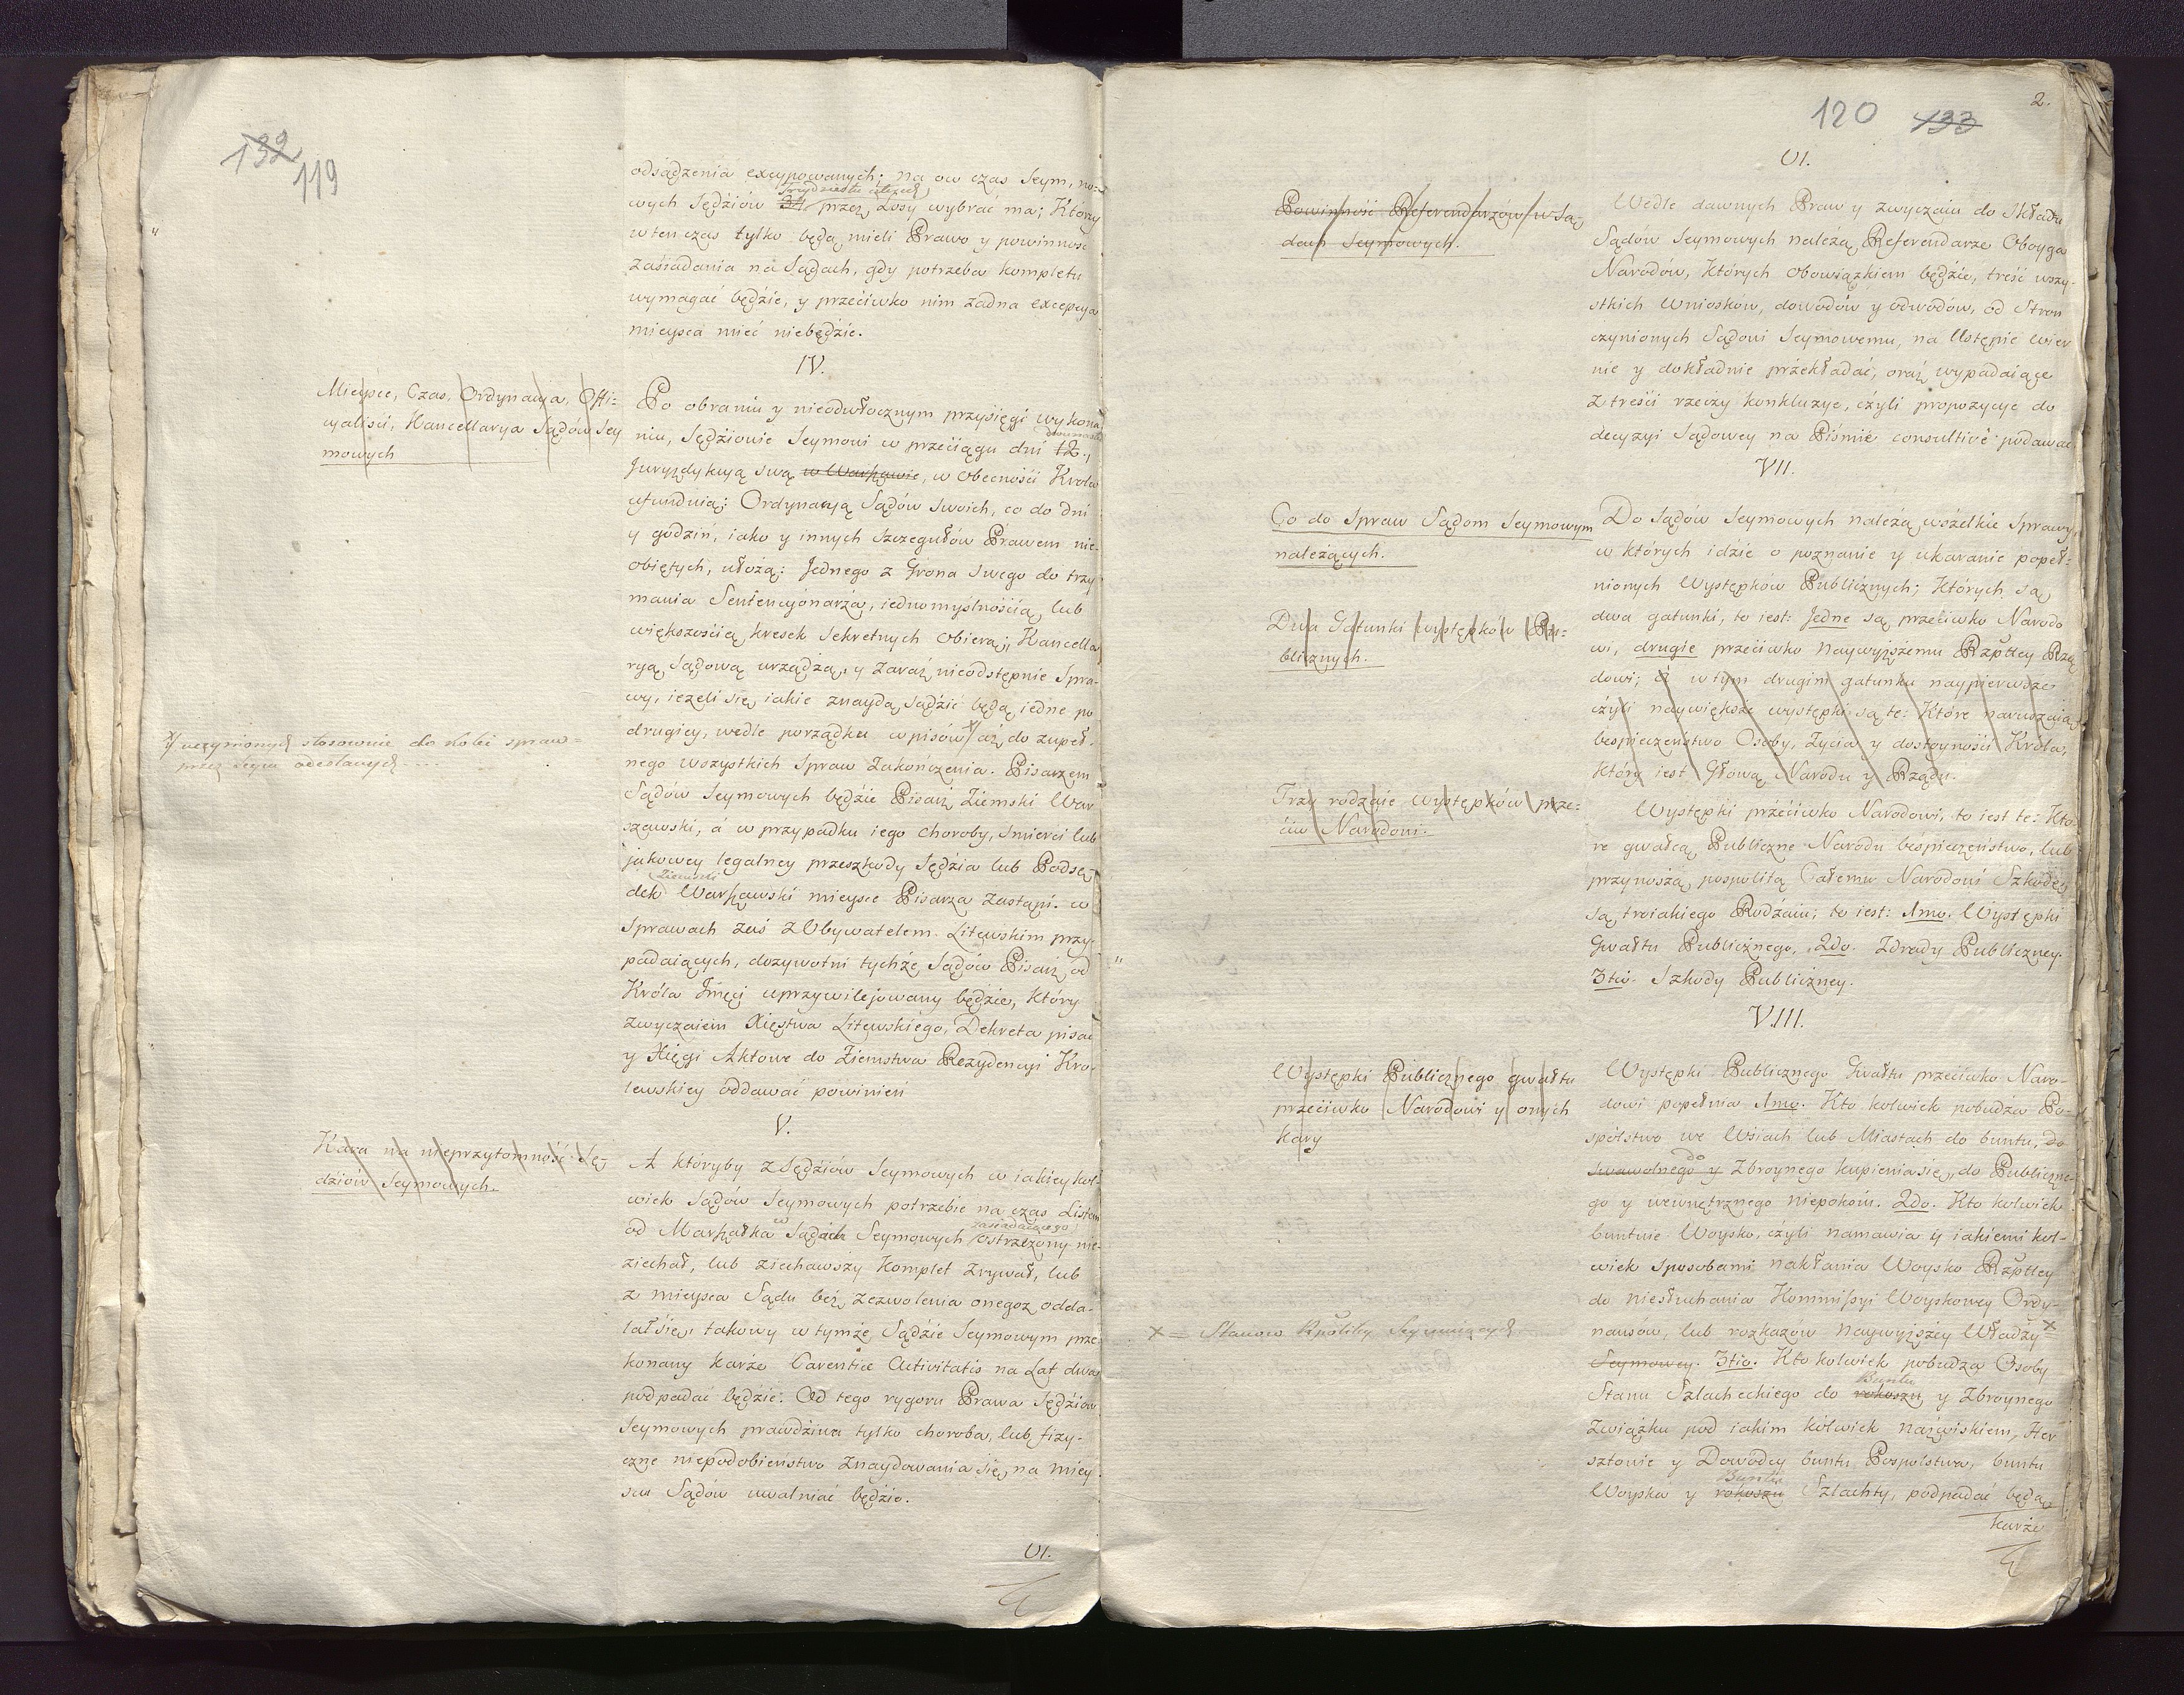 132
119
odsądzenia excypowanych; na ow czas Seym, no-
trzydziestu czterech
wych Sędziów 34 przez Losy wybrać ma; Którzy
wten czas tylko będą mieli Prawo y powinność
zasiadania na Sądach, gdy potrzeba kompletu
wymagać będzie, y przećiwko nim żadna excepcya
mieysca mieć niebędzie.
IV.
Mieysce, Czas, Ordynacya, Offi-
cyaliści, Kancellarya Sądów Sey
mowych
Po obraniu y nieodwłocznym przysięgi wykona
dwunastu
niu, Sędziowie Seymowi w przećiągu dni 12.,
Juryzdykcyą swą w Warszawie, w obecnośći Króla
ufunduią: Ordynacyą Sądów swoich, co do dni
y godzin, iako y innych szczegułów Prawem nie-
obiętych, ułożą: Jednego z Grona swego do trzy
mania Sentencyonarza, iednomyślnośćią lub
większośćią kresek sekretnych obiorą; Kancella
ryą Sądową urządzą, y zaraz nieodstępnie Spra-
wy, ieżeli się iakie znaydą sądzić będą iedne po
drugiey, wedle porządku wpisów aż do zupeł-
Y uczynionych stosownie do kolei spraw=
przez Seym odesłanych
nego wszystkich Spraw zakończenia. Pisarzem
Sądów Seymowych będzie Pisarz Ziemski War
szawski, á w przypadku iego choroby, śmierci lub
jakowey legalney przeszkody Sędzia lub Podsę
Ziemski
dek Warszawski mieysce Pisarza zastąpi. w
Sprawach zaś z Obywatelem Litewskim przy-
padaiących, dożywotni tychże Sądów Pisarz od
Króla Jmći uprzywilejowany będzie, który
zwyczaiem Xięstwa Litewskiego, Dekreta pisać
y Xięgi Aktowe do Ziemstwa Rezydencyi Kró-
lewskiey oddawać powinien
V.
Kara na nieprzytomność Sę-
dziów Seymowych.
A któryby z Sędziów Seymowych w iakieykol
wiek Sądów Seymowych potrzebie na czas Listem
w
zasiadaiącego
od Marszałka Sądach Seymowych ostrzeżony nie-
ziechał, lub ziechawszy Komplet zrywał, lub
z mieysca Sądu bez zezwolenia onegoż odda-
lał się, takowy w tymże Sądzie Seymowym prze-
konany karze Carentiæ Activitatis na Lat dwa
podpadać będzie: Od tego rygoru Prawa Sędziów
Seymowych prawdziwa tylko choroba, lub fizy-
czne niepodobieństwo znaydowania się na miey
scu Sądów uwalniać będzie.
VI.
120
133
2.
VI.
Powinność Referendarzów w Są
dach Seymowych.
Wedle dawnych Praw y zwyczaiu do Składu
Sądów Seymowych należą Referendarze Oboyga
Narodów, których obowiązkiem będzie, treść wszy-
stkich Wniosków, dowodów y odwodów, od Stron
czynionych Sądowi Seymowemu, na Ustępie wier
nie y dokładnie przekładać, oraz wypadaiące
z treści rzeczy konkluzye, czyli propozycye do
decyzyi Sądowey na Piśmie consultivè podawać
VII.
Co do Spraw Sądom Seymowym
należących.
Do Sądów Seymowych należą wszelkie Sprawy,
w których idzie o poznanie y ukaranie popeł-
nionych Występków Publicznych; Których są
Dwa Gatunki występków Pu-
blicznych.
dwa gatunki, to iest: Jedne są przećiwko Narodo
wi, drugie przećiwko Naywyższemu Rzptley Rzą
dowi; á w tym drugim gatunku naypierwsze
czyli naywiększe występki są te: Które naruszaią
bespieczeństwo Osoby, Życia y dostoynośći Króla,
który iest Głową Narodu y Rządu.
Trzy rodzaie występków prze-
ćiw Narodowi.
Występki przećiwko Narodowi, to iest te: Któ
re gwałcą Publiczne Narodu bespieczeństwo, lub
przynoszą pospolitą Całemu Narodowi Szkodę
są troiakiego Rodzaiu; to iest: 1mo. Występki
Gwałtu Publicznego, 2do. Zdrady Publiczney.
3tio. Szkody Publiczney.
VIII.
Występki Publicznego gwałtu
przećiwko Narodowi y onych
kary
Występki Publicznego Gwałtu przećiwko Naro-
dowi popełnia 1mo. Kto kolwiek pobudza Po-
spólstwo we Wsiach lub Miastach do buntu, do
do
swawolnego y zbroynego kupienia się, do Publiczne-
go y wewnętrznego niepokoiu. 2do. Kto kolwiek
buntuie Woysko, czyli namawia y iakiemi kol-
wiek sposobami nakłania Woysko Rzptley
do niesłuchania Kommissyi Woyskowey Ordy-
nansów, lub rozkazów Naywyższey Władzy x
x = Stanow Rzpltéy Seymuiących
Seymowey. 3tio. Kto kolwiek pobudza Osoby
Buntu
Stanu Szlacheckiego do rokoszu y zbroynego
Związku pod iakim kolwiek nazwiskiem, Her
sztowie y Dowódcy buntu Pospolstwa, buntu
Buntu
Woyska y rokoszu Szlachty, podpadać będą
karze